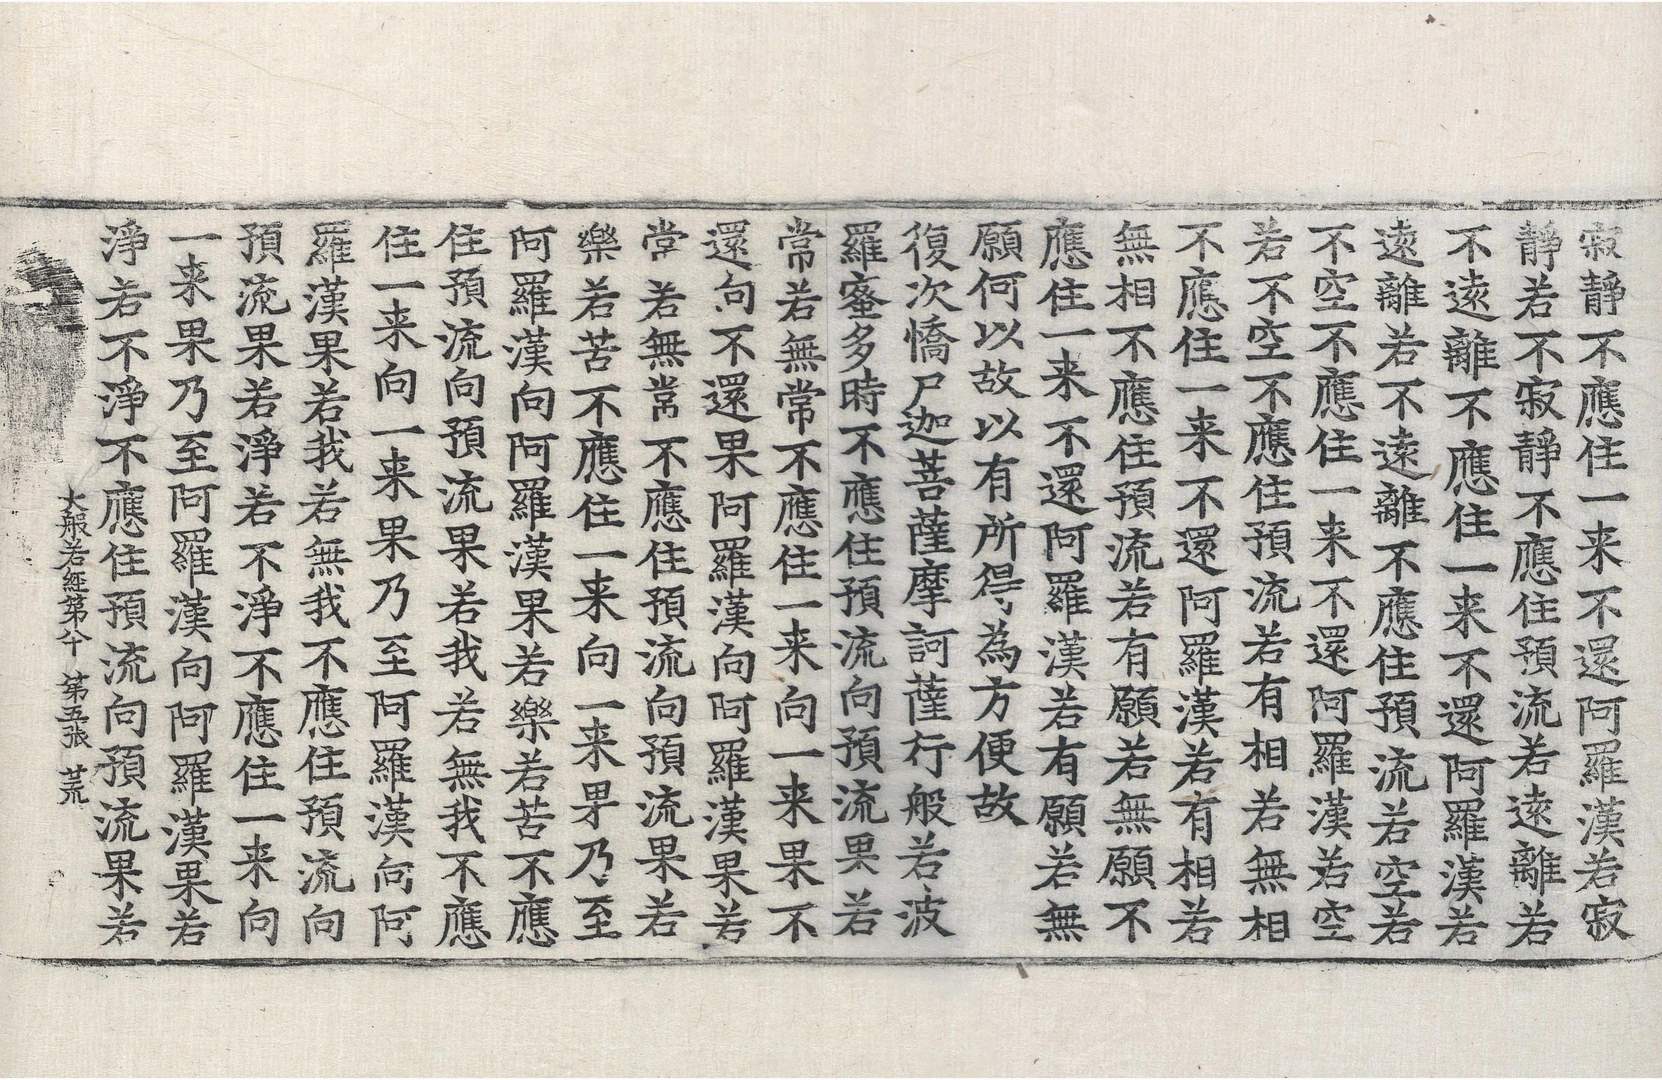 寂靜不應住一来不還阿羅漢若寂
靜若不寂靜不應住預流若遠離若
不遠離不應住一来不還阿羅漢若
遠離若不遠離不應住預流若空若
不空不應住一来不還阿羅漢若空
若不空不應住預流若有相若無相
不應住一来不還阿羅漢若有相若
無相不應住預流若有願若無願不
應住一来不還阿羅漢若有願若無
願何以故以有所得為方便故
復次憍尸迦菩薩摩訶薩行般若波
羅蜜多時不應住預流向預流果若
常若無常不應住一来向一来果不
還向不還果阿羅漢向阿羅漢果若
常若無常不應住預流向預流果若
樂若苦不應住一来向一来果乃至
阿羅漢向阿羅漢果若樂若苦不應
住預流向預流果若我若無我不應
住一来向一来果乃至阿羅漢向阿
羅漢果若我若無我不應住預流向
預流果若淨若不淨不應住一来向
一来果乃至阿羅漢向阿羅漢果若
淨若不淨不應住預流向預流果若
大般若經第八十 第五张 荒